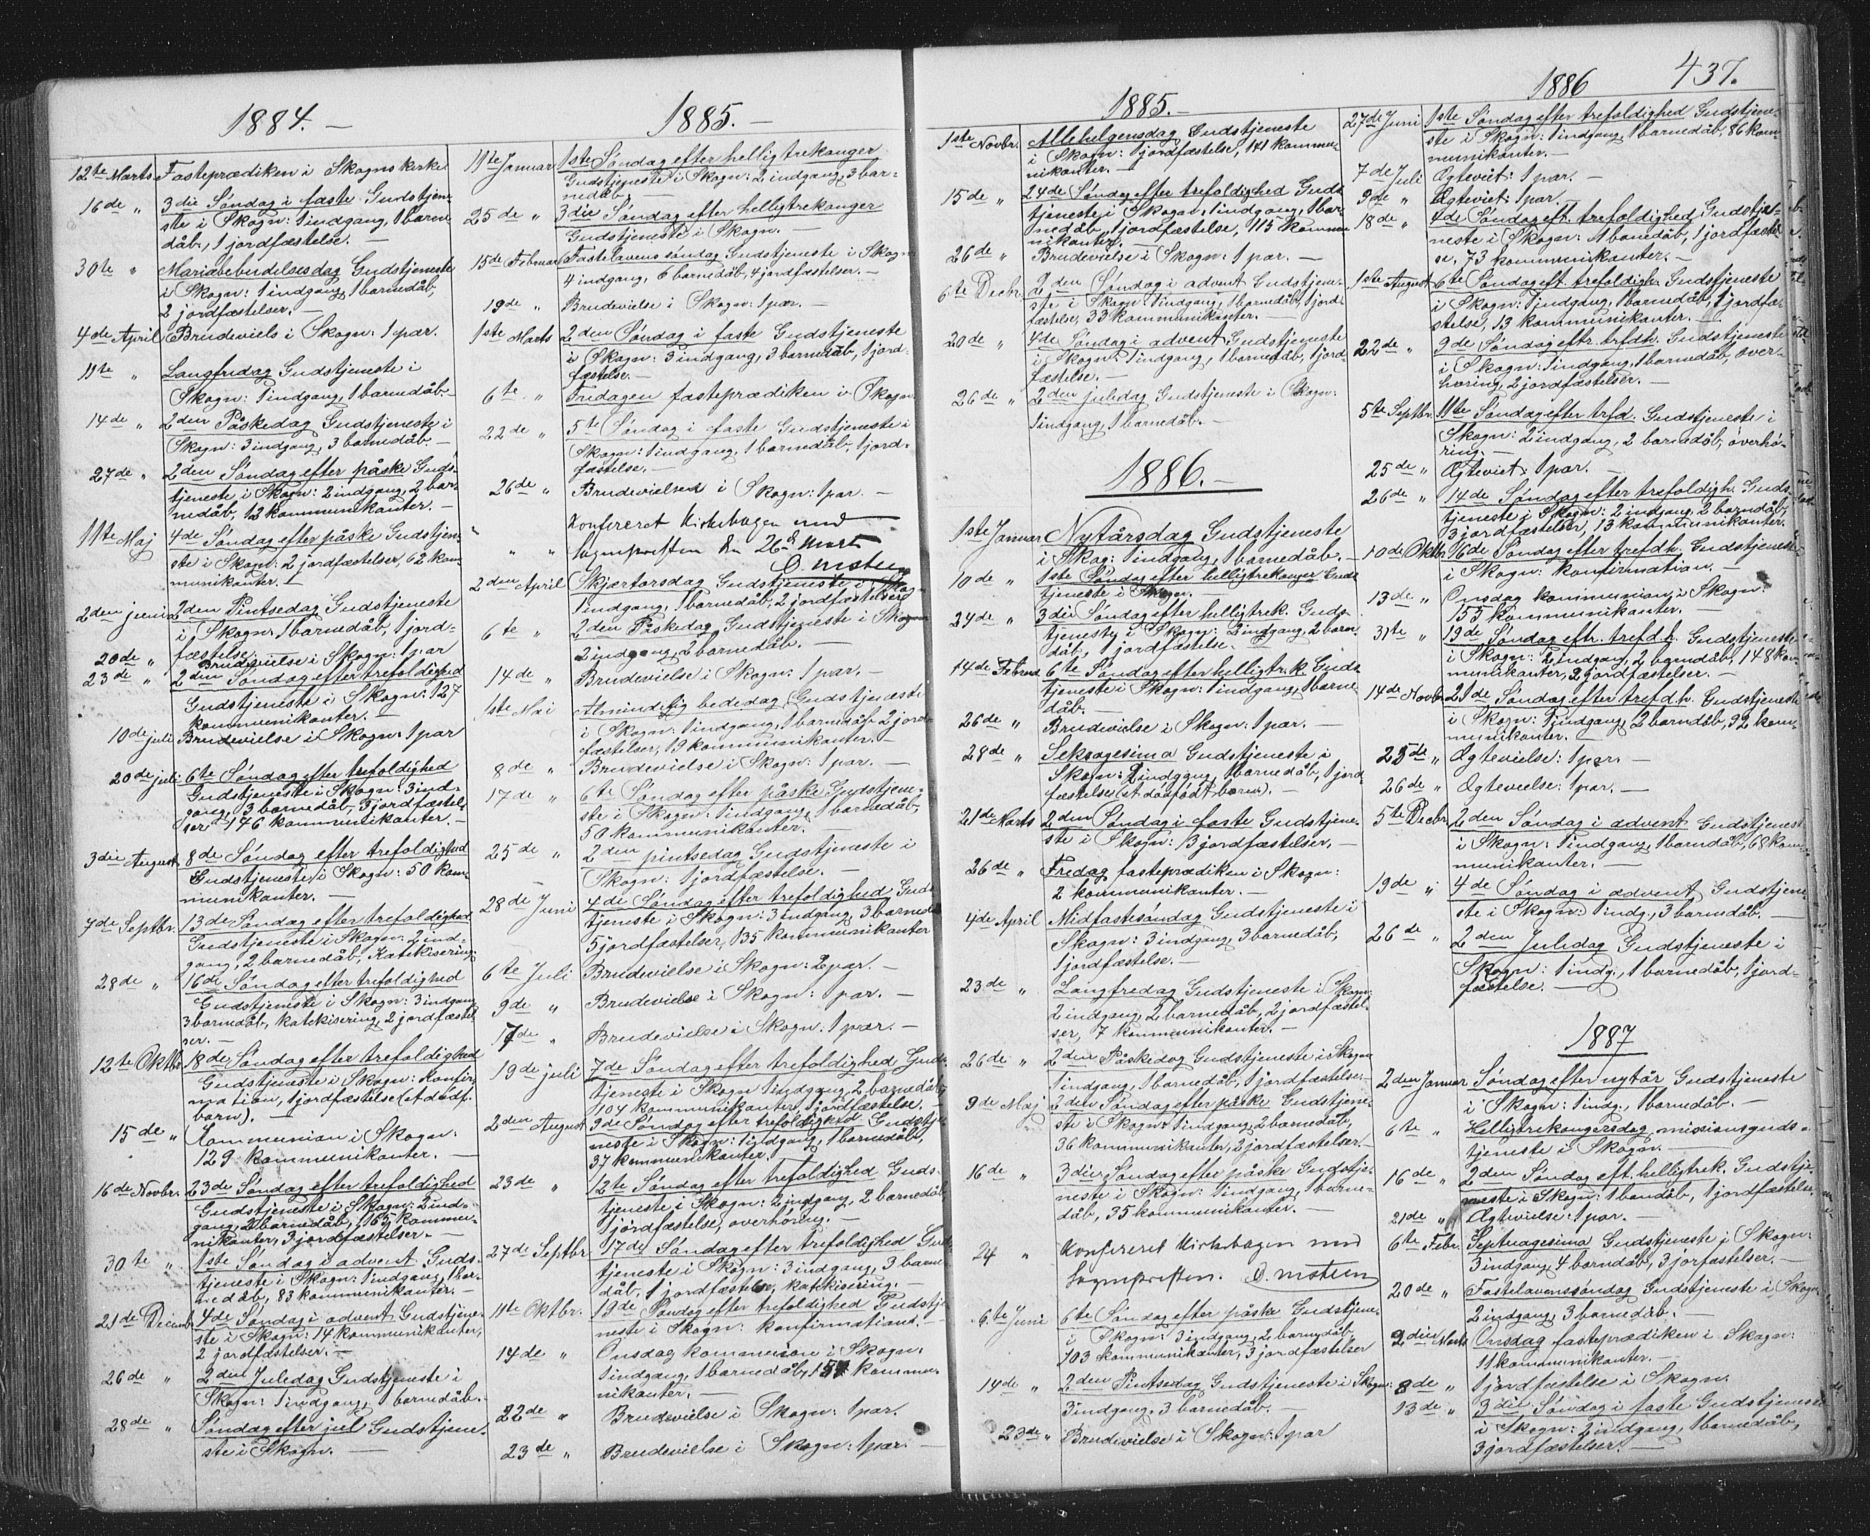 437.
1884. —
12te Marts Fasteprædiken i Skogns kirke
16de „ 3die Søndag i faste Gudstjene-
ste i Skogn: 1 indgang, 1 barne-
dåb, 1 jordfæstelse. —
30te „ Mariæbebudelsesdag Gudstjeneste
i Skogn: 1 indgang, 1 barnedåb,
2 jordfæstelser. —
4de April Brudeviels i Skogn: 1 par.
11te „ Langfredag Gudstjeneste i
Skogn: 1 indgang, 1 barnedåb. —
14de „ 2den Påskedag Gudstjeneste i
Skogn: 3 indgang, 3 barnedåb, —
27de „ 2den Søndag efter påske Guds-
tjeneste i Skogn: 2 indgang, 2 bar-
nedåb, 12 kommunikanter. —
11te Maj 4de Søndag efter påske Gudstjene-
ste i Skogn: 2 jordfæstelser, 62 kom-
munikanter. —
2den juni 2den Pintsedag Gudstjeneste
i Skogn: 1 barnedåb, 1 jord-
fæstelse. —
20de „ Brudevielse i Skogn: 1 par
23de „ 2den Søndag efter trefoldighed
Gudstjeneste i Skogn: 127
kommunikanter. —
10de juli Brudevielse i Skogn: 1 par
20de juli 6te Søndag efter trefoldighed
Gudstjeneste i Skogn: 3 ind-
gang, 3 barnedåb, 3 jordfæstel-
ser 146 kommunikanter. —
3die August 8de Søndag efter trefoldighed
Gudstjeneste i Skogn: 50 kom-
munikanter. —
7de Septbr. 13de Søndag efter trefoldighed
Gudstjeneste i Skogn: 2 ind-
gang, 2 barnedåb, Katekisering
28de „ 16de Søndag efter trefoldighed
Gudstjeneste i Skogn: 3 indgang
3 barnedåb, katekisering, 2 jordfæstel
ser. —
12te Oktbr 18de Søndag efter trefoldighed
Gudstjeneste i Skogn: Konfir-
mation, 1 jordfæstelse (et dødf.
barn). —
15de „ Kommunion i Skogn:
129 kommunikanter. —
16de Novbr. 23de Søndag efter trefoldighed
Gudstjeneste i Skogn: 2 ind-
gang, 2 barnedåb, 165 kommu-
nikanter, 3 jordfæstelser. —
30te „ 1ste Søndag i advent Guds-
tjeneste i Skogn: 1 indgang, 1 bar-
nedåb, 83 kommunikanter. —
21de Decemb 4de Søndag i advent Gudstjene-
ste i Skogn: 14 kommunikanter,
2 jordfæstelser. —
26de „ 2den Juledag Gudstjeneste i
Skogn: 1 indgang, 1 bernedåb. —
28de „ Søndag efter jul Gudstjene-
ste i Skogn. —
1885. —
11te Januar 1ste Søndag efter helligtrekonger
Gudstjeneste i Skogn: 2 indgang, 3 bar-
nedåb. —
25de „ 3die Søndag efter helligtrekonger
Gudstjeneste i Skogn. —
15de Februar Fastelavenssøndag Gudstjeneste i Skogn
4 indgang, 6 barnedåb, 4 jordfæstelser. —
19de „ Brudevielse i Skogn: 1 par. —
1ste Marts 2den Søndag i faste Gudstjeneste
i Skogn: 3 indgang, 3 barnedåb, 1 jord-
fæstelse. —
6te „ Fridagen fasteprædiken i Skogn
22de „ 5te Søndag i faste Gudstjeneste i
Skogn: 1 indgang, 1 barnedåb, 1 jord-
fæstelse. —
26de „ Brudevielsed i Skogn: 1 par. —
„ „ Konfereret Kirkebogen med
Sogneprestens den 26de Marts
2den April Skjertorsdag Gudstjeneste i Skog-
1 indgang, 1 barnedåb, 2 jordfæstelser
6te „ 2den Påskedag Gudstjeneste i Skogn
2 indgang, 2 barnedåb. —
14de „ Brudevielse i Skogn: 1 par. —
1ste Mai Almindelig bededag Gudstjeneste
i Skogn: 1 indgang, 1 barnedåb, 2 jord-
fæstelser, 19 kommunikanter. —
8de „ Brudevielse i Skogn: 1 par. —
17de „ 6te Søndag efter påske Gudstjene-
ste i Skogn: 1 indgang, 1 barnedåb,
50 kommunikanter. —
25de „ 2den pintsedag Gudstjeneste i
Skogn: 1 jordfæstelse. —
28de Juni 4de Søndag efter trefoldighed Guds-
tjeneste i Skogn: 3 indgang, 3 barnedåb
5 jordfæstelser, 135 kommunikanter
6te Juli Brudevielse i Skogn: 2 par. —
9de „ Brudevielse i Skogn: 1 par. —
17de „ Brudevielse i Skogn: 1 par. —
19de juli 7de Søndag efter trefoldighed Guds-
tjeneste i Skogn 1 indgang, 2 barnedåb
104 kommunikanter, 1 jordfæstelse. —
2den August 9de Søndag efter trefoldighed Gudstje-
neste i Skogn: 1 indgang, 1 barnedåb,
37 kommunikanter.
23de „ 12te Søndag efter trefoldighed Guds-
tjeneste i Skogn: 2 indgang, 2 barnedåb
1 jordfæstelse, overhøring. —
27de Septbr. 17de Søndag efter trefoldighed Guds
tjeneste i Skogn: 3 indgang, 3 barne-
dåb, 1 jordfæstelse, katekisering. —
11te Oktbr. 19de Søndag efter trefoldighed Gudstje-
neste i Skogn: Konfirmations. —
14de „ Onsdag komunion i Skogn:
1 indgang, 1 barnedåb, 157 kommu-
nikanter. —
22de „ Brudevielse i Skogn: 1 par.
23de „ Brudevielse i Skogn: 1 par. —
1885. —
1ste Novbr. Allehelgensdag Gudstjeneste
i Skogn: 1 jordfæstelse, 141 kommu-
nikanter. —
15de „ 24de Søndag efter trefoldighed Guds
tjeneste i Skogn, 1 indgang, 1 bar-
nedåb, 1 jordfæstelse, 115 kommu
nikanter. —
26de „ Brudevielse i Skogn: 1 par. —
6te Decbr. 2den Søndag i advent Gudstjene-
ste i Skogn 1 indgang, 1 barnedåb, 1 jord-
fæstelse, 33 kommunikanter. —
20de „ 4de Søndag i advent Gudstjeneste
i Skogn: 1 indgang, 1 barnedåb, 1 jord
fæstelse. —
26de „ 2den juledag Gudstjeneste i Skogn:
1 indgang, 1 barnedåb. —
1886. —
1ste Januar Nytårsdag Gudstjeneste
i Skog: 1 indgang, 1 barnedåb. —
10de „ 1ste Søndag efter helligtrekonger Guds
tjeneste i Skogn. —
24de „ 3die Søndag efter helligtrek. Guds-
tjeneste i Skogn: 2 indgang, 2 barn
dåb, 1 jordfæstelse. —
14de Februar 6te Søndag efter helligtrek. Guds
tjeneste i Skogn: 1 indgang, 1 barne-
dåb. —
26de „ Brudevielse i Skogn: 1 par. —
28de „ Seksagesima Gudstjeneste i
Skogn: 2 indgang, 1 barnedåb, 1 jord
fæstelse (et dødfødt barn). —
21de Marts 2den Søndag i faste Gudstjene-
ste i Skogn: 3 jordfæstelser. —
26de „ Fredag fasteprædiken i Skogn:
2 kommunikanter. —
4de April Midfastesøndag Gudstjeneste i
Skogn: 3 indgang, 3 barnedåb,
1 jordfæstelse. —
23de „ Langfredag Gudstjeneste i Skogn
2 indgang, 2 barnedåb, 2 jordfæstel-
ser, 7 kommunikanter. —
26de „ 2den Påskedag Gudstjeneste i Skogn
1 indgang, 1 barnedåb, 1 jordfæstelse. —
9de Maj 2den Søndag efter påske Gudstjene-
ste i Skogn: 1 indgang, 2 barnedåb,
36 kommunikanter, 2 jordfæstelser. —
16de „ 3die Søndag efter påske Gudstje-
neste i Skogn: 1 indgang, 1 barne-
dåb, 35 kommunikanter. —
24 „ Konfereret Kirkebogen med
Sogneprestens.
6te Juni 6te Søndag efter påske Gudstjene-
i Skogn: 3 indgang, 2 barnedåb,
103 kommunikanter, 3 jordfæstelser
14de „ 2den Pintsedag Gudstjeneste i Skogn:
3 indgang, 3 barnedåb. —
23de „ Brudevielse i Skogn: 1 par
1886
27de Juni 1ste Søndag efter trefoldighed Gudstjene-
ste i Skogn: 1 indgang, 1 barnedåb, 86 kom
munikanter. —
7de Juli Ægteviet: 1 par. —
9de „ Ægteviet: 1 par. —
18de „ 4de Søndag eft. trefoldighed Gudstje-
neste i Skogn: 1 barnedåb, 1 jordfæstel
se, 73 kommunikanter. —
1ste August 6te Søndag eft. trefoldigh. Gudstjeneste
i Skogn: 1 indgang, 1 barnedåb, 1 jordfæ-
stelse, 13 kommunikanter. —
22de „ 9de Søndag eftr. trfdh. Gudstjeneste
i Skogn: 1 indgang, 1 barnedåb, over-
høring, 2 jordfæstelser. —
5te Septbr. 11te Søndag efter trfd. Gudstjeneste i
Skogn: 2 indgang, 2 barnedåb, overhø-
ring. —
25de „ Ægteviet 1 par. —
26de „ 14de Søndag efter trefoldigh. Guds-
tjeneste i Skogn: 2 indgang, 2 barnedåb,
3 jordfæstelser, 13 kommunikanter.
10de Oktbr. 16de Søndag efter trefdh. Gudstjeneste
i Skogn: konfirmation. —
13de „ Onsdag kommunion i Skogn:
153 kommunikanter. —
31te „ 19de Søndag eftr. trefdh. Gudstjeneste
i Skogn: 2 indgang, 2 barnedåb, 148 kom-
munikanter, 2 jordfæstelser. —
14de Novbr 21de Søndag efter trefdh. Gudstjeneste
i Skogn: 1 indgang, 2 barnedåb, 92 kom-
munikanter. —
25de „ Ægtevielse: 1 par. —
26de „ Ægtevielse: 1 par. —
5te Decbr 2den Søndag i advent Gudstjenest
i Skogn: 1 indgang, 1 barnedåb, 68 kom-
munikanter. —
19de „ 4de Søndag i advent Gudstjene-
ste i Skogn: 1 indg., 3 barnedåb.
26de „ 2den Juledag Gudstjeneste i
Skogn: 1 indg., 1 barnedåb, 1 jord-
fæstelse. —
1887
2den Januar Søndag efter nytår Gudstjeneste
i Skogn: 1 indg., 1 barnedåb. —
6te „ Helligtrekongersdag, missionsguds-
tjeneste i Skogn. —
16de „ 2den Søndag eft. helligtrek. Gudstje-
neste i Skogn: 1 bandåb, 1 jordfæstelse,
21de „ Ægtevielse: 1 par. —
6te Febr. Septuagesima Gudstjeneste i Skogn:
3 indgang, 4 barnedåb, 3 jorfæstelser. —
20de „ Fastelavenssøndag Gudstjeneste i Skogn
2 indgang, 3 barnedåb. —
2den Marts Onsdag fasteprædiken i Skogn:
11 kommunikanter. —
8de „ 1 jordfæstelse i Skogn.
13de „ 3die Søndag i faste Gudstjeneste
i Skogn: 2 indgang, 1 barnedåb,
3 jordfæstelser. —